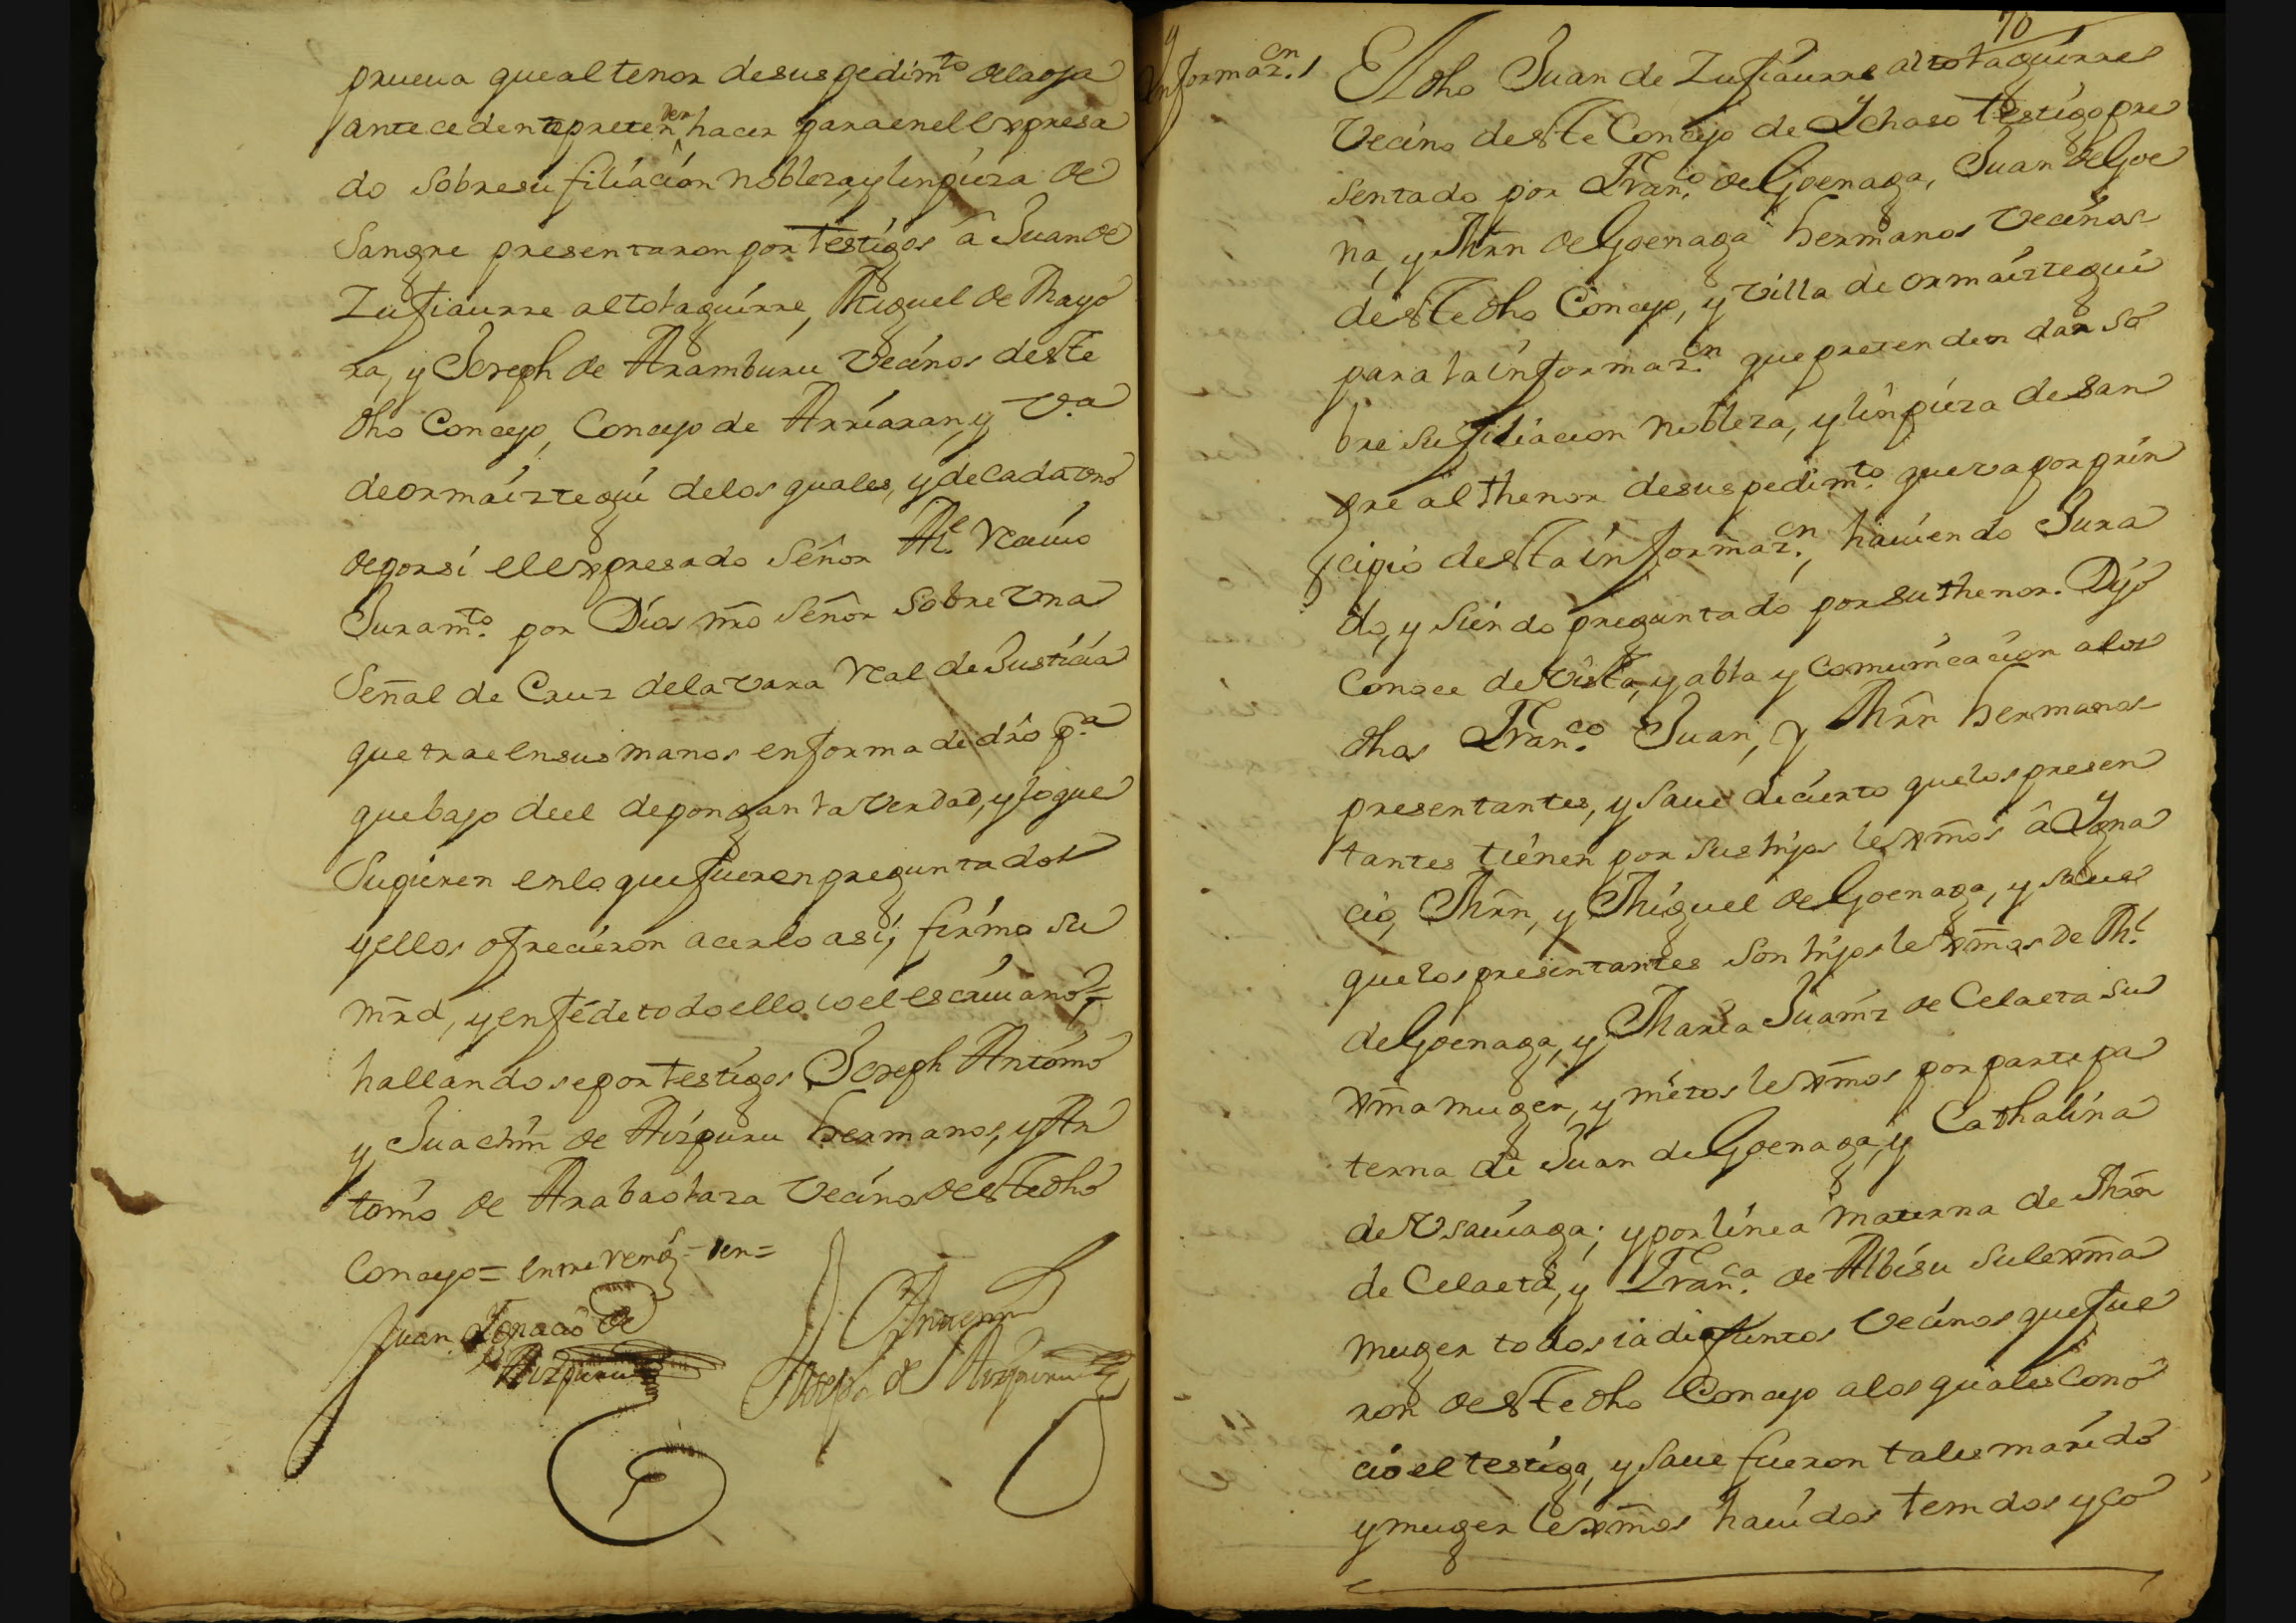 prueua que al tenor de sus pedim.to de la oja
antecedente preten^den hacer para en el expresa
do sobre su filiación nobleza y linpieza de
Sangre presentaron por testigos â Juan de
Zufiaurre altolaguirre, Miguel de Mayo
ra, y Joseph de Aramburu Vecinos deste
dho Concejo, Concejo de Arriaran, y V.a
de ormaiztegui de los quales, y de cada vno
de por si el expresado Señor Al.e Reciuio
Juram.to por Dios nro Señor sobre vna
Señal de Cruz de la vara Real de Justicia
que trae en sus manos en forma de dro p.a
que bajo de el depongan la verdad, y lo que
Supieren en lo que fueren preguntados
y ellos ofrecieron acerlo asi, firmo su
mrd, y en fé de todo ello io el escriuano
hallandose por testigos Joseph Antonio
y Juachin de Aizpuru hermanos, y An
tonio de Arabaolaza Vecinos deste dho
Concejo = entre reng.s = den =
Juan Ignacio de
Aizpuru
Ante mi
Joseph de Aizpuru
70
Informaz.on
El dho Juan de Zufiaurre altolaguirre
Vecino deste Concejo de Ichaso testigo pre
sentado por Fran.co de Goenaga, Juan de Goe
na, y Mrn de Goenaga hermanos Vecinos
deste dho Concejo, y villa de ormaiztegui
para la informaz.on que pretenden dar so
bre su filiacion nobleza, y linpieza de san
gre al thenor de sus pedim.to que va por prin
cipio desta informaz.on, hauiendo Jura
do, y siendo preguntado por su thenor. Dijo
Conoce de vista, y abla y comunicacion a los
dhos Fran.co Juan, y Mrn hermanos
presentantes, y saue de cierto que los presen
tantes tienen por sus hijos lexmos â Igna
cio, Mrn, y Miguel de Goenaga, y saue
que los presentantes son hijos lexmos de Ml
de Goenaga, y Maria Juaniz de Celaeta su
xma muger, y nietos lexmos por parte pa
terna de Juan de Goenaga, y Cathalina
de Vsauiaga; y por linea materna de Mrn
de Celaeta, y Fran.ca de Albisu su lexma
muger todos ia difuntos Vecinos que fue
ron deste dho Concejo a los quales Cono
cio el testigo, y saue fueron tales marido
y muger lexmos hauidos tenidos y co